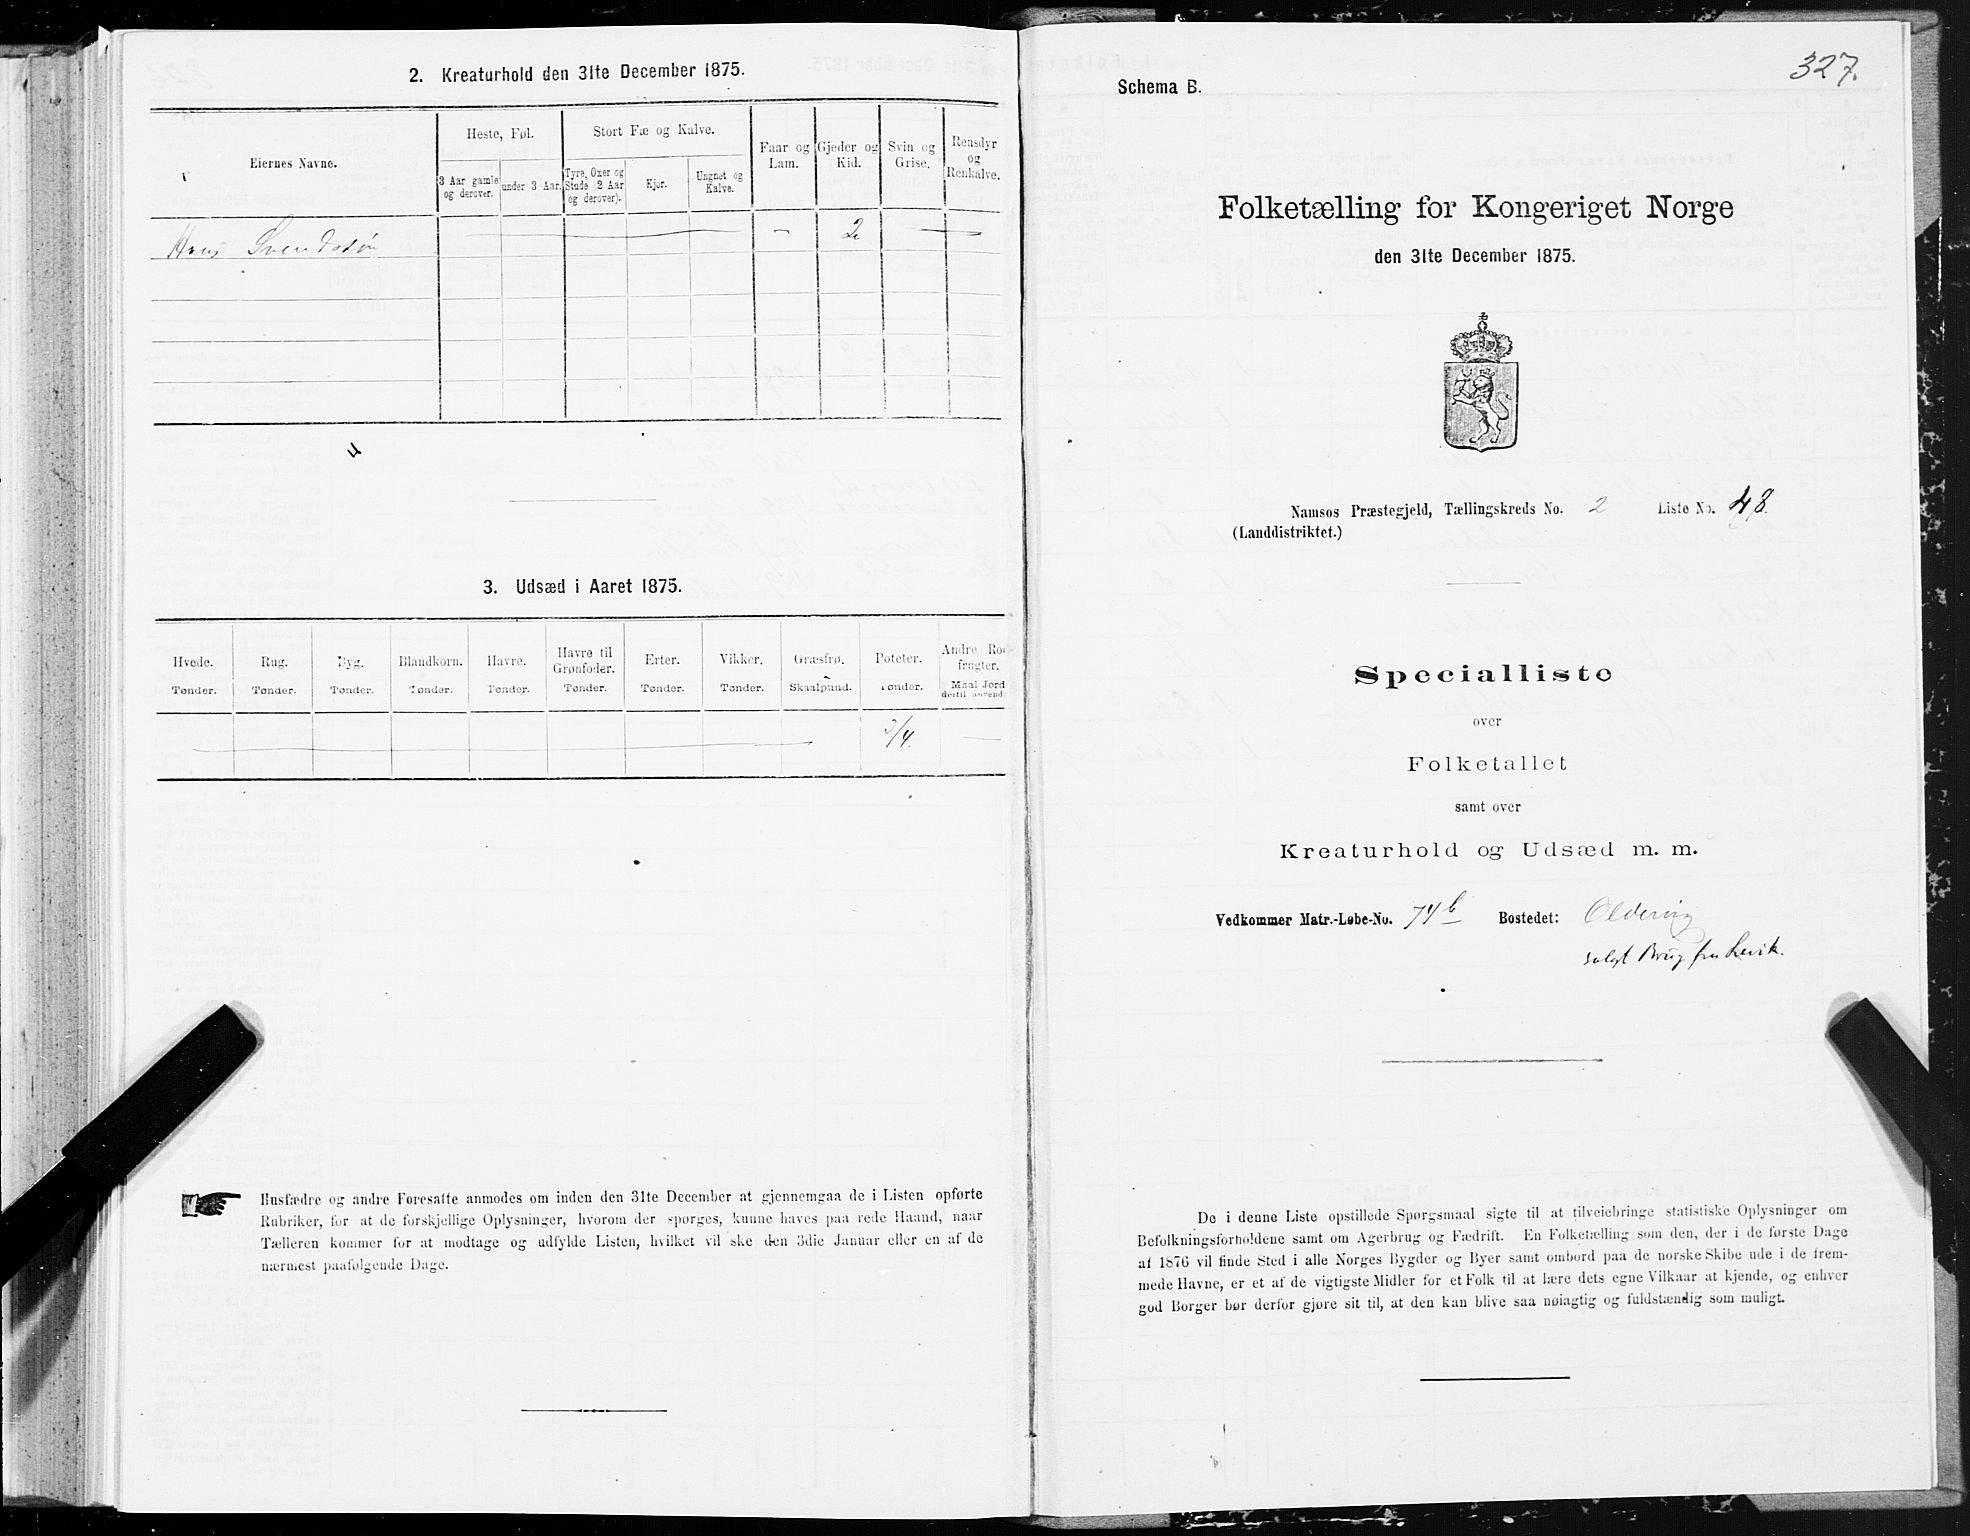 2. Kreaturhold den 31te December 1875.
Eiernes Navne.
Heste, Føl.
Stort Fæ og Kalve.
Faar og Lam.
Gjeder og Kid.
Svin og Grise.
Rensdyr og Renkalve.
3 Aar gamle og derover.
under 3 Aar.
Tyre, Oxer og Stude (2 Aar og derover).
Kjør.
Ungnøt og Kalve.
Hans Svendsøn — — 2 —
3. Udsæd i Aaret 1875.
Hvede. Rug. Byg. Blandkorn. Havre. Havre til Grønfoder. Erter. Vikker. Græsfrø. Poteter. Andre Rodfrugter.
Tønder. Tønder. Tønder. Tønder. Tønder. Tønder. Tønder. Tønder. Skaalpund. Tønder. Maal Jord dertil anvendt.
— 3/4. —
Husfædre og andre Foresatte anmodes om inden den 31te December at gjennemgaa de i Listen opførte
Rubriker, for at de forskjellige Oplysninger, hvorom der spørges, kunne haves paa rede Haand, naar
Tælleren kommer for at modtage og udfylde Listen, hvilket vil ske den 3die Januar eller en af de
nærmest paafølgende Dage.
327.
Schema B.
Folketælling for Kongeriget Norge
den 31te December 1875.
Namsos Præstegjeld, Tællingskreds No. 2 Liste No. 48.
(Landdistriktet.)
Specialliste
over
Folketallet
samt over
Kreaturhold og Udsæd m. m.
Vedkommer Matr.-Løbe-No. 74b Bostedet: Oldervig
solgt Brug fra Levik.
De i denne Liste opstillede Spørgsmaal sigte til at tilveiebringe statistiske Oplysninger om
Befolkningsforholdene samt om Agerbrug og Fædrift. En Folketælling som den, der i de første Dage
af 1876 vil finde Sted i alle Norges Bygder og Byer samt ombord paa de norske Skibe ude i de frem-
mede Havne, er et af de vigtigste Midler for et Folk til at lære dets egne Vilkaar at kjende, og enhver
god Borger bør derfor gjøre sit til, at den kan blive saa nøiagtig og fuldstændig som muligt.